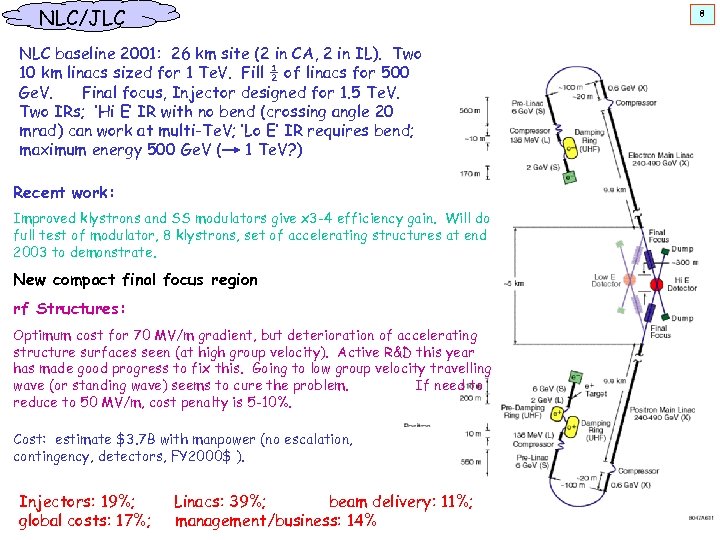 NLC/JLC
8
NLC baseline 2001: 26 km site (2 in CA, 2 in IL). Two
10 km linacs sized for 1 TeV. Fill ½ of linacs for 500
GeV. Final focus, Injector designed for 1.5 TeV.
Two IRs; ‘Hi E’ IR with no bend (crossing angle 20
mrad) can work at multi-TeV; ‘Lo E’ IR requires bend;
maximum energy 500 GeV (→ 1 TeV?)
Recent work:
Improved klystrons and SS modulators give x3-4 efficiency gain. Will do
full test of modulator, 8 klystrons, set of accelerating structures at end
2003 to demonstrate.
New compact final focus region
rf Structures:
Optimum cost for 70 MV/m gradient, but deterioration of accelerating
structure surfaces seen (at high group velocity). Active R&D this year
has made good progress to fix this. Going to low group velocity travelling
wave (or standing wave) seems to cure the problem. If need to
reduce to 50 MV/m, cost penalty is 5-10%.
Cost: estimate $3.7B with manpower (no escalation,
contingency, detectors, FY2000$ ).
Injectors: 19%; Linacs: 39%; beam delivery: 11%;
global costs: 17%; management/business: 14%
~100 m
~20 m
0.6 GeV (X)
Compressor
Pre-Linac
6 GeV (S)
560 m
Compressor
136 MeV (L)
Damping
Ring
(UHF)
~10 m
e-
2 GeV (S)
170 m
e-
Electron Main Linac
240-490 GeV (X)
9.9 km
Final
Focus
Dump
~300 m
Low E
Detector
Hi E
Detector
~5 km
Dump
Final
Focus
9.9 km
6 GeV (S)
2 GeV (L)
e+
Target
e-
200 m
Pre-Damping
Ring (UHF)
e+
e+
10 m
136 MeV (L)
Compressor
Damping
Ring
(UHF)
Positron Main Linac
240-490 GeV (X)
560 m
Pre-Linac
6 GeV (S)
Compressor
0.6 GeV (X)
~20 m
~100 m